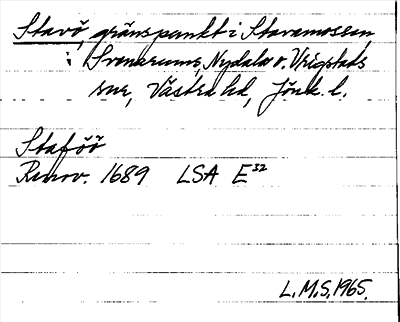 Stavö, gränspunkt i Stavamossen
i Svenarums, Nydala o. Vrigstads
snr, Västra hd, Jönk. l.
Staföö
Renov. 1689 LSA E³²
L.M.S. 1965.